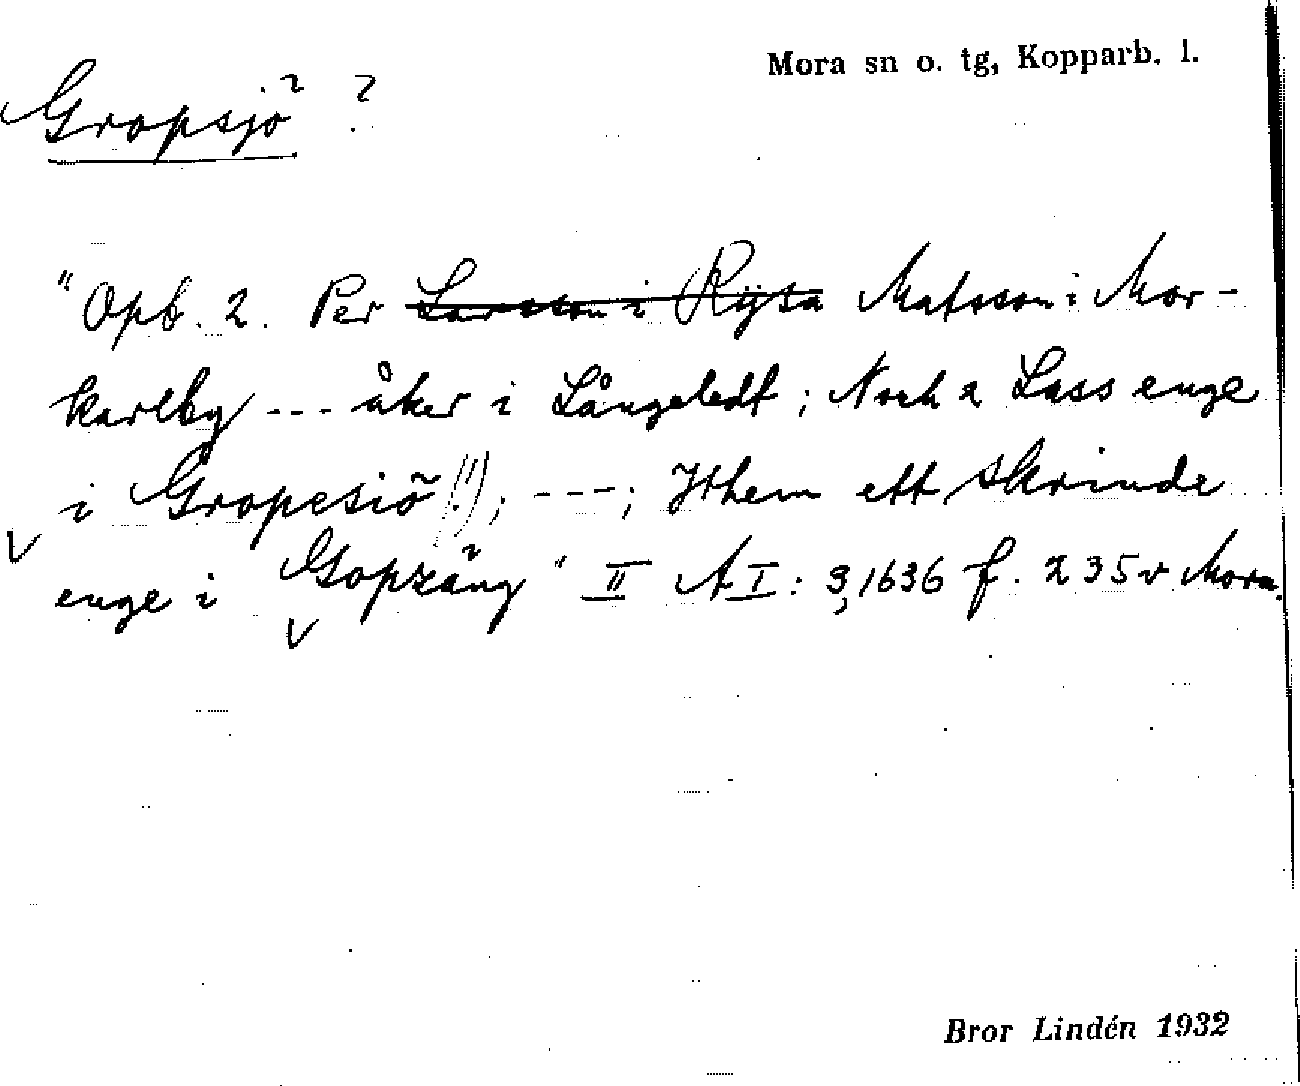 Mora sn o. tg, Kopparb. l.
Gropsjö ?
"Opb. 2. Per Larsson i Rijsa Matsson i Mor-
karlby --- åker i Långeledt; Noch 2 Lass enge
i Gropesiö (!!); ---; Ithem ett skrinde
enge i Gopzäng" II A I: 3, 1636 f. 235 v Mora.
Bror Lindén 1932